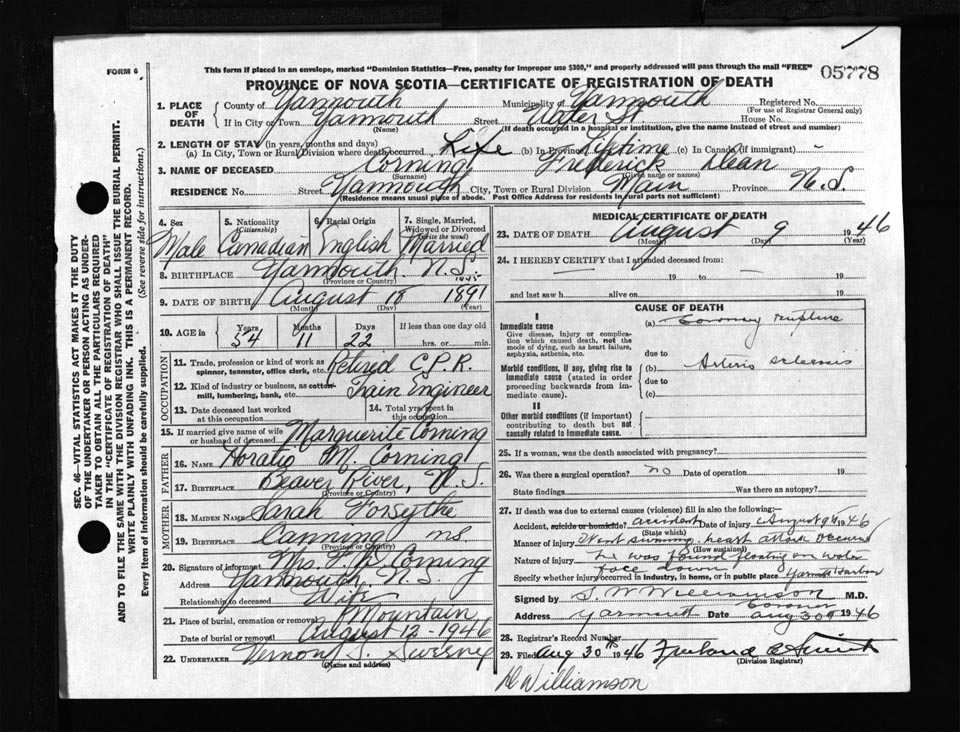 FORM 6
This form if placed in an envelope, marked "Dominion Statistics—Free, penalty for improper use $300," and properly addressed will pass through the mail "FREE"
05778
PROVINCE OF NOVA SCOTIA—CERTIFICATE OF REGISTRATION OF DEATH
1. PLACE OF DEATH
County of Yarmouth Municipality of Yarmouth Registered No.
(For use of Registrar General only)
If in City or Town Yarmouth Street Water St House No.
(Name) (If death occurred in a hospital or institution, give the name instead of street and number)
2. LENGTH OF STAY (in years, months and days)
(a) In City, Town or Rural Division where death occurred Life (b) in Province Lifetime (c) in Canada (if immigrant) -
3. NAME OF DECEASED Corning Frederick Dean
(Surname) (Given name or names)
RESIDENCE No. Street Yarmouth City, Town or Rural Division Main Province N.S.
(Residence means usual place of abode. Post Office Address for residents in rural parts not sufficient)
4. Sex 5. Nationality (Citizenship) 6. Racial Origin 7. Single, Married, Widowed or Divorced (write the word)
Male Canadian English Married
8. BIRTHPLACE Yarmouth N.S.
(Province or Country)
9. DATE OF BIRTH August 18 1891
(Month) (Day) (Year)
10. AGE in Years Months Days If less than one day old
54 11 22 hrs. or min.
OCCUPATION
11. Trade, profession or kind of work as spinner, teamster, office clerk, etc. Retired C.P.R.
12. Kind of industry or business, as cotton-mill, lumbering, bank, etc. Train Engineer
13. Date deceased last worked at this occupation
14. Total yrs. spent in this occupation
15. If married give name of wife or husband of deceased Marguerite Corning
FATHER
16. NAME Horatio M. Corning
17. BIRTHPLACE Beaver River, N.S.
(Province or Country)
MOTHER
18. MAIDEN NAME Sarah Forsythe
19. BIRTHPLACE Canning N.S.
(Province or Country)
20. Signature of informant Mrs. F. D. Corning
Address Yarmouth, N.S.
Relationship to deceased Wife
21. Place of burial, cremation or removal Mountain
Date of burial or removal August 12 - 1946
22. UNDERTAKER Vernon S. Sweeny
(Name and address)
MEDICAL CERTIFICATE OF DEATH
23. DATE OF DEATH August 9 1946
(Month) (Day) (Year)
24. I HEREBY CERTIFY that I attended deceased from:
— 19 to — 19
and last saw h alive on 19
CAUSE OF DEATH
I
Immediate cause (a) Coronary rupture
Give disease, injury or complication which caused death, not the mode of dying, such as heart failure, asphyxia, asthenia, etc.
due to
Morbid conditions, if any, giving rise to immediate cause (stated in order proceeding backwards from immediate cause).
(b) Arterio sclerosis
due to
(c)
II
Other morbid conditions (if important) contributing to death but not causally related to immediate cause.
25. If a woman, was the death associated with pregnancy?
26. Was there a surgical operation? no Date of operation 19
State findings Was there an autopsy?
27. If death was due to external causes (violence) fill in also the following:-
Accident, suicide or homicide? accident Date of injury August 9th 1946
(State which)
Manner of injury Went swimming heart attack occurred
(How sustained)
Nature of injury he was found floating on water
face down
Specify whether injury occurred in industry, in home, or in public place Yarmouth Harbour
Signed by S. W. Williamson M.D.
Coroner
Address Yarmouth Date Aug 30 1946
28. Registrar's Record Number
29. Filed Aug 30th 1946
(Division Registrar)
Dr Williamson
SEC. 46—VITAL STATISTICS ACT MAKES IT THE DUTY
OF THE UNDERTAKER OR PERSON ACTING AS UNDER-
TAKER TO OBTAIN ALL THE PARTICULARS REQUIRED
IN THE "CERTIFICATE OF REGISTRATION OF DEATH"
AND TO FILE THE SAME WITH THE DIVISION REGISTRAR WHO SHALL ISSUE THE BURIAL PERMIT.
WRITE PLAINLY WITH UNFADING INK. THIS IS A PERMANENT RECORD.
Every item of information should be carefully supplied. (See reverse side for instructions.)